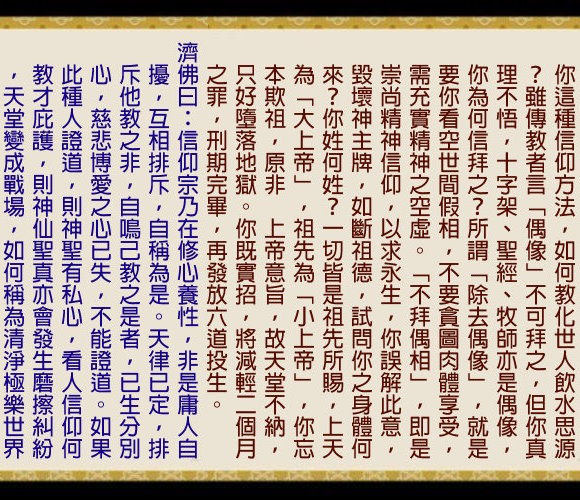 你這種信仰方法，如何教化世人飲水思源
？雖傳教者言「偶像」不可拜之，但你真
理不悟，十字架、聖經、牧師亦是偶像，
你為何信拜之？所謂「除去偶像」，就是
要你看空世間假相，不要貪圖肉體享受，
需充實精神之空虛。「不拜偶相」，即是
崇尚精神信仰，以求永生，你誤解此意，
毀壞神主牌，如斷祖德，試問你之身體何
來？你姓何姓？一切皆是祖先所賜，上天
為「大上帝」，祖先為「小上帝」，你忘
本欺祖，原非　上帝意旨，故天堂不納，
只好墮落地獄。你既實招，將減輕二個月
之罪，刑期完畢，再發放六道投生。
濟佛曰：信仰宗乃在修心養性，非是庸人自
擾，互相排斥，自稱為是。天律已定，排
斥他教之非，自鳴己教之是者，已生分別
心，慈悲博愛之心已失，不能證道。如果
此種人證道，則神聖有私心，看人信仰何
教才庇護，則神仙聖真亦會發生磨擦糾紛
，天堂變成戰場，如何稱為清淨極樂世界